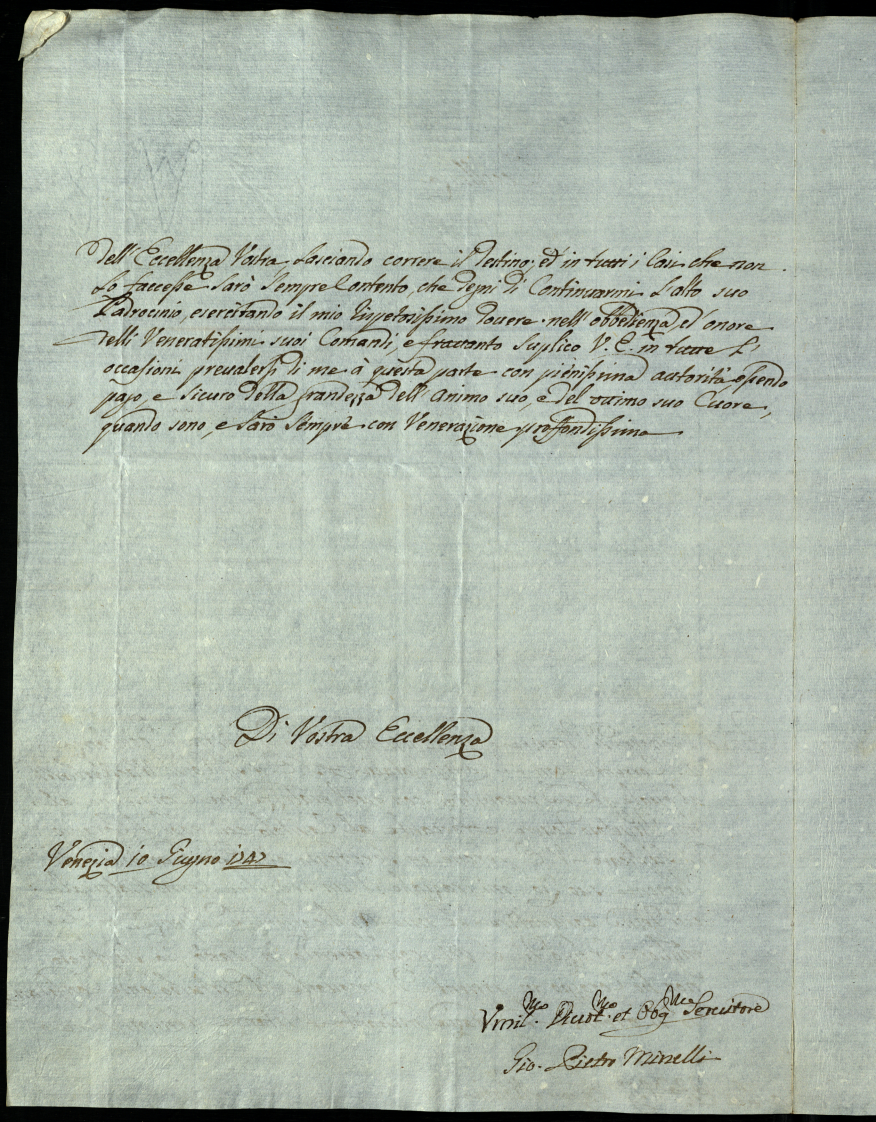 dell'Eccellenza Vostra, lasciando correre il Destino; ed in tutti i Casi che non
lo facesse sarò sempre Contento, che degni di Continuarmi l'alto suo
Padrocinio, esercitando il mio rispetosissimo dovere nell'obbedienza, ed onore
delli Veneratissimi suoi Comandi, e frattanto suplico V. E. in tutte l'
occasioni prevalersi di me à questa parte con pienissima autorità essendo
pago, e sicuro della grandezza dell'animo suo, e del ottimo suo Cuore,
quando sono, e sarò sempre con Venerazione proffondissima
Di Vostra Eccellenza
Venezia 10 Giugno 1747
Umil.mo Deuot.mo et Obg.mo Seruitore
Gio. Pietro Minelli